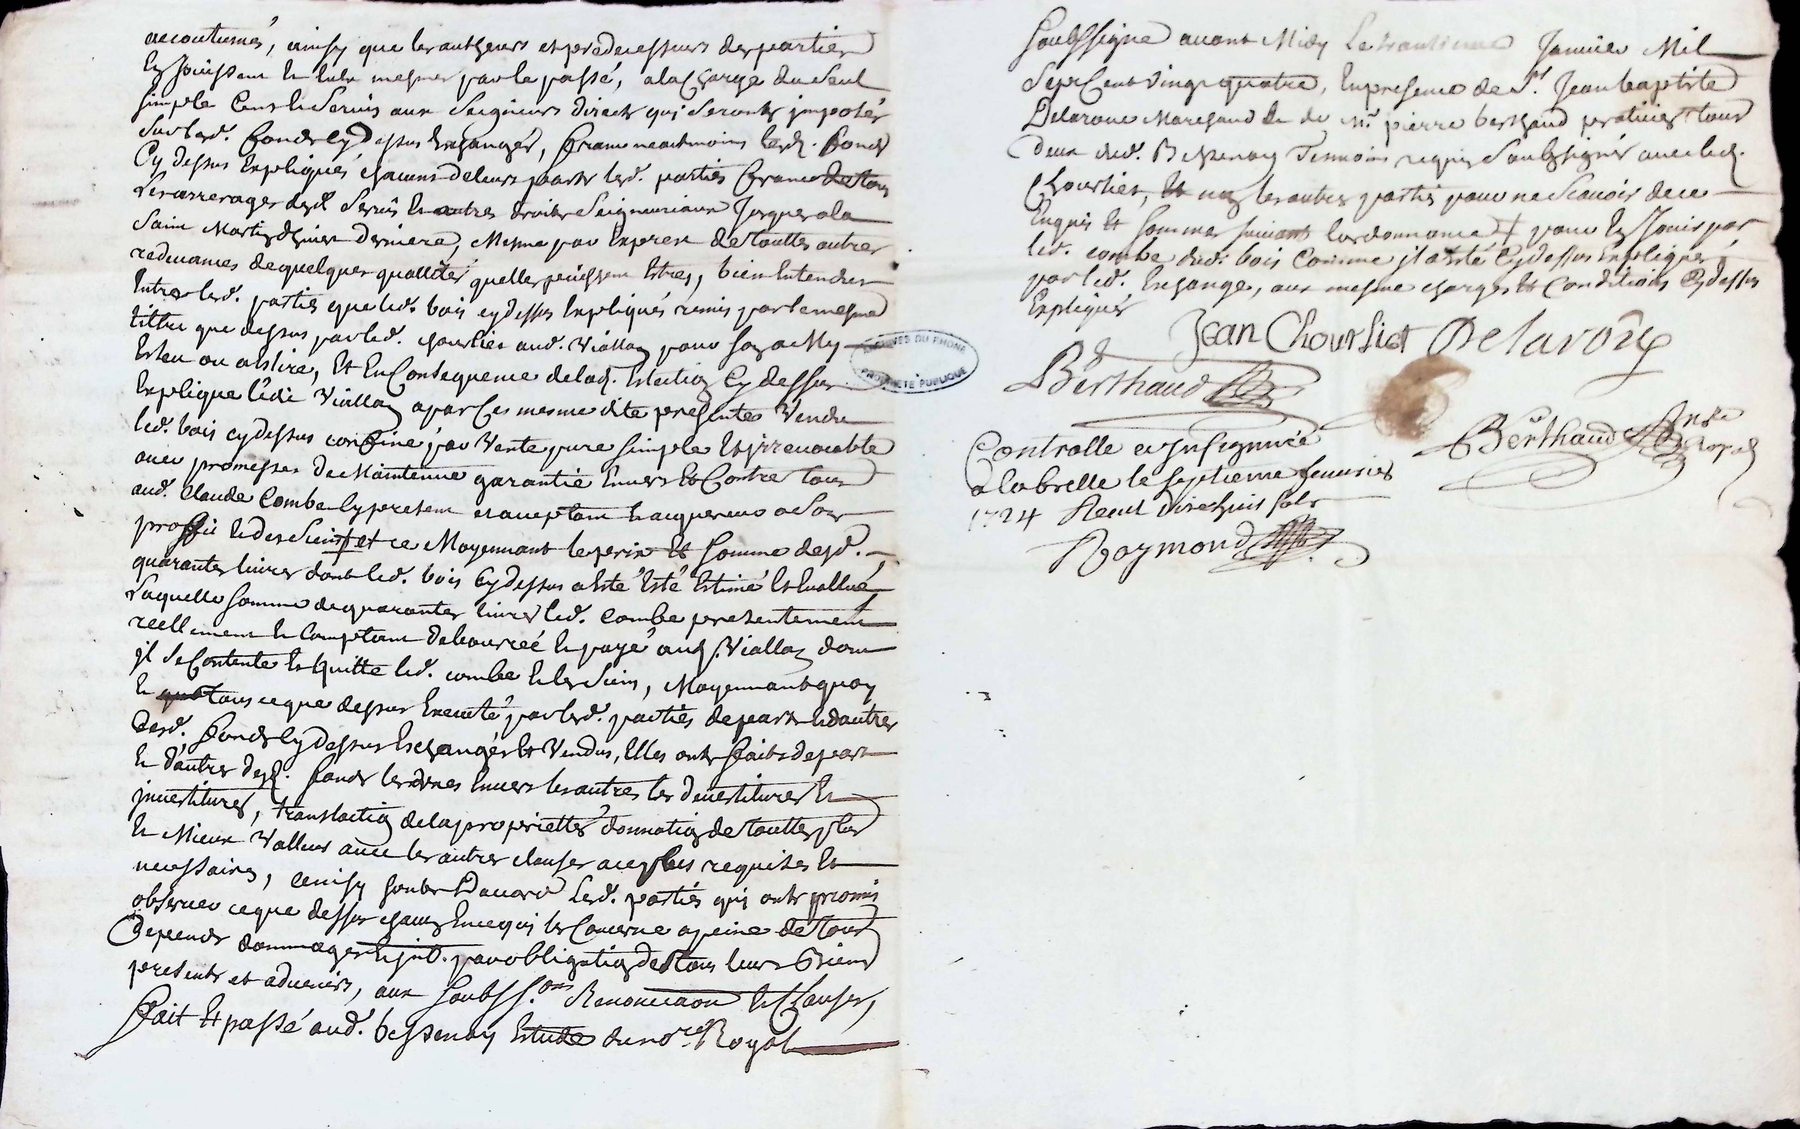 accoutumés, ainsy que les autheurs et predecesseurs des parties
En jouissent et eulx mesmes par le passé, a la charge du seul
simple Cens et Servis aux Seigneurs directs qui seronts imposés
Sur lesd. fonds Cy dessus Eschangés, francs neantmoins lesd. fonds
Cy dessus Expliqués chacuns de leurs parts lesd. parties francs de tous
Les arrerages desd. Servis Et autres droits Seigneuriaux Jusques a la
Saint Martin d'hiver derniere, Mesme par Exprest de touttes autres
redevances de quelques quallités quelles puissent Estres, bien Entendu
Entre lesd. parties que led. bois cy dessus Expliqués remis par le mesme
tiltre que dessus par led. chourlier aud. Viallon pour son amy
Esleu ou a eslire, Et En Consequence de lad. Election Cy dessus
Expliqué ledit Viallon a par Ces mesme dite presentes Vendu
led. bois cy dessus confiné par Vente pure simple Et irrevocable
avec promesses de Maintenue garantie Envers Et Contre tous
aud. Claude Combe Cy present et acceptant Et acquereur a son
proffit Et des Siens + et ce Moyennant le prix Et Somme desd.
quarantes livres dont led. bois Cy dessus a Esté Esté Estimé Et Evallué
Laquelle Somme de quarantes livres led. Combe presentement
reellement Et Comptant debourcé Et payé aud. Viallon dont
jl se Contente Et quitte led. combe Et les Siens, Moyennant quoy
Et tous ce que dessus Executé par lesd. parties de parts Et d'autres
Desd. fonds Cy dessus Eschangés Et Vendus, Elles onts faits de part
Et d'autres desd. fonds les unes Envers les autres les devestitures Et
jnvestitures, translation de la proprietté donnation de touttes plus
Et Mieux Vallues avec les autres clauses a ces fins requises Et
necessaires, ainsy sonts d'accord Lesd. parties qui onts promis
observer ce que dessus chacun En ce qui les Concerne a peine de tous
Depends dommages Et jnt. par obligation de tous leurs Biens
presents et advenirs, aux Soubss.ons Renonciaon Et Clauses,
fait Et passé aud. bessenay Estude du no.re Royal
soubssigné avant Midy Le trantieme Janvier Mil
Sept Cent Vingt quatre, En presence de Sr. Jean baptiste
Delarone Marchand Et de Mr. pierre berthaud praticien tous
Deux dud. Bessenay Temoins requis Soubssignés avec led.
Chourlier, Et non les autres parties pour ne Scavoir de ce
Enquis Et Sommés suivant l'ordonnance + pour En Jouir par
led. combe dud. bois Comme jl a Esté Cy dessus Expliqué
par led. Eschange, aux mesme charges Et Conditions Cy dessus
Expliqués
Jean Chourlier Delaroüe
Berthaud
Berthaud No.re Royal
Controllé et jnsignuée
a labrelle le septieme fevrier
1724 Receu dix huit sols
Raymond
ARCHIVES DU RHONE
PROPRIÉTÉ PUBLIQUE